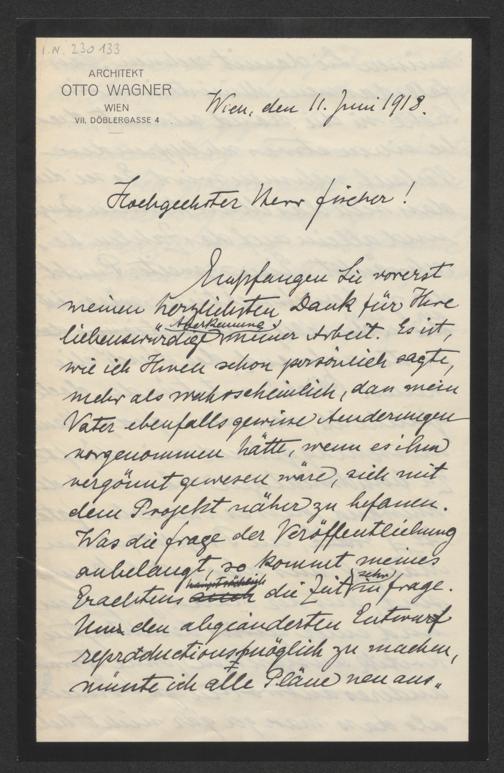 I.N. 230 133
ARCHITEKT
OTTO WAGNER
WIEN
VII, DÖBLERGASSE 4
Wien, den 11. Juni 1918.
Hochgeehrter Herr Fischer!
Empfangen Sie vorerst
meinen herzlichsten Dank für Ihre
liebenswürdige Anerkennung meiner Arbeit. Es ist,
wie ich Ihnen schon persönlich sagte,
mehr als wahrscheinlich, dass mein
Vater ebenfalls gewisse Änderungen
vorgenommen hätte, wenn es ihm
vergönnt gewesen wäre, sich mit
dem Projekt näher zu befassen.
Was die Frage der Veröffentlichung
anbelangt, so kommt meines
Erachtens hauptsächlich die Zeit sehr in Frage.
Um den abgeänderten Entwurf
reproductionsmöglich zu machen,
müsste ich alle Pläne neu aus-